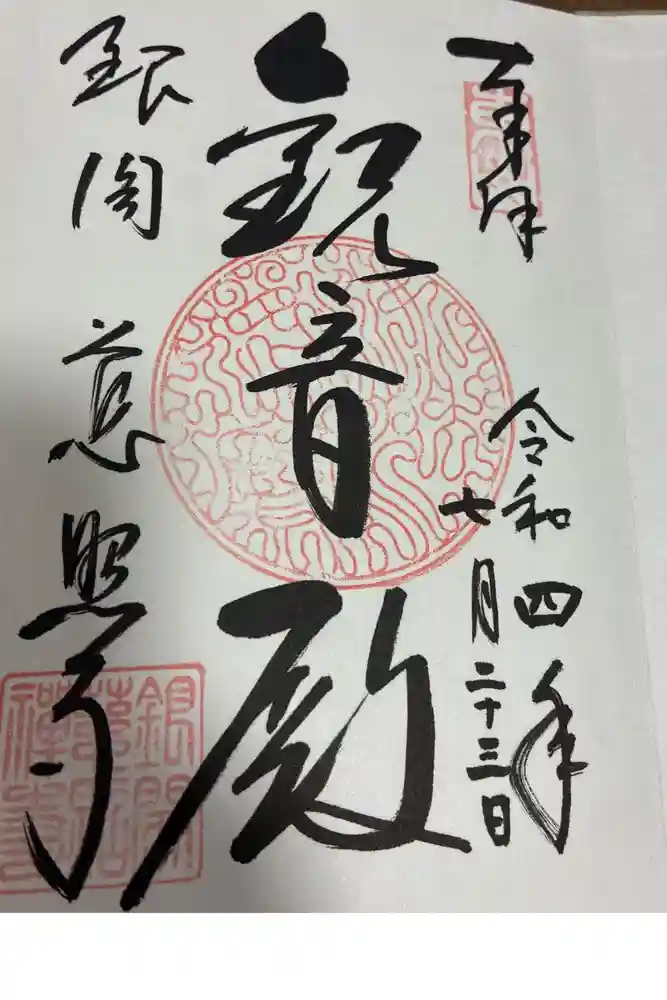 奉拝
令和四年
七月二十三日
観音殿
銀閣 慈照寺
銀閣
慈照
禅寺